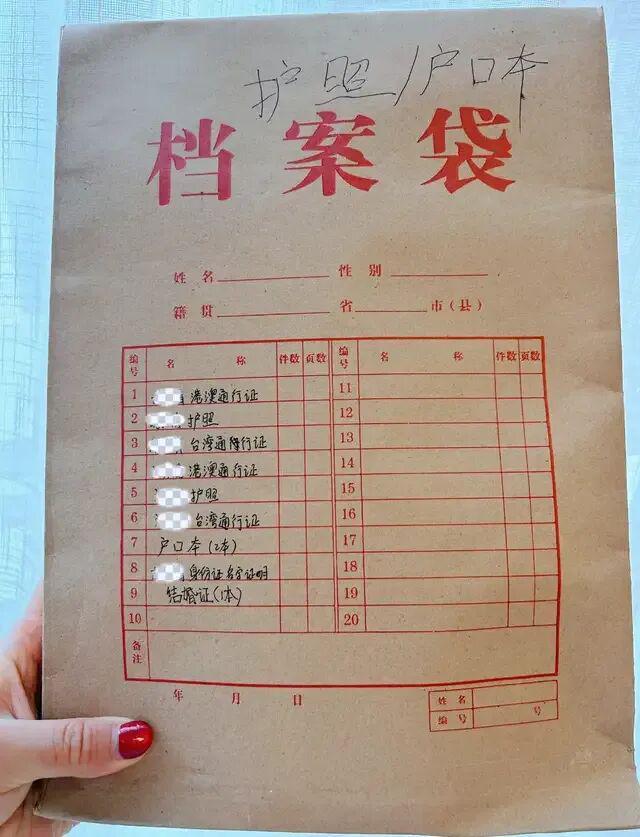 护照/户口本
档案袋
姓名 性别
籍贯 省 市(县)
编号 名称 件数 页数 编号 名称 件数 页数
1 港澳通行证 11
2 护照 12
3 台湾通行证 13
4 港澳通行证 14
5 护照 15
6 台湾通行证 16
7 户口本(2本) 17
8 身份证名字证明 18
9 结婚证(1本) 19
10 20
备注
年 月 日
姓名
编号 号